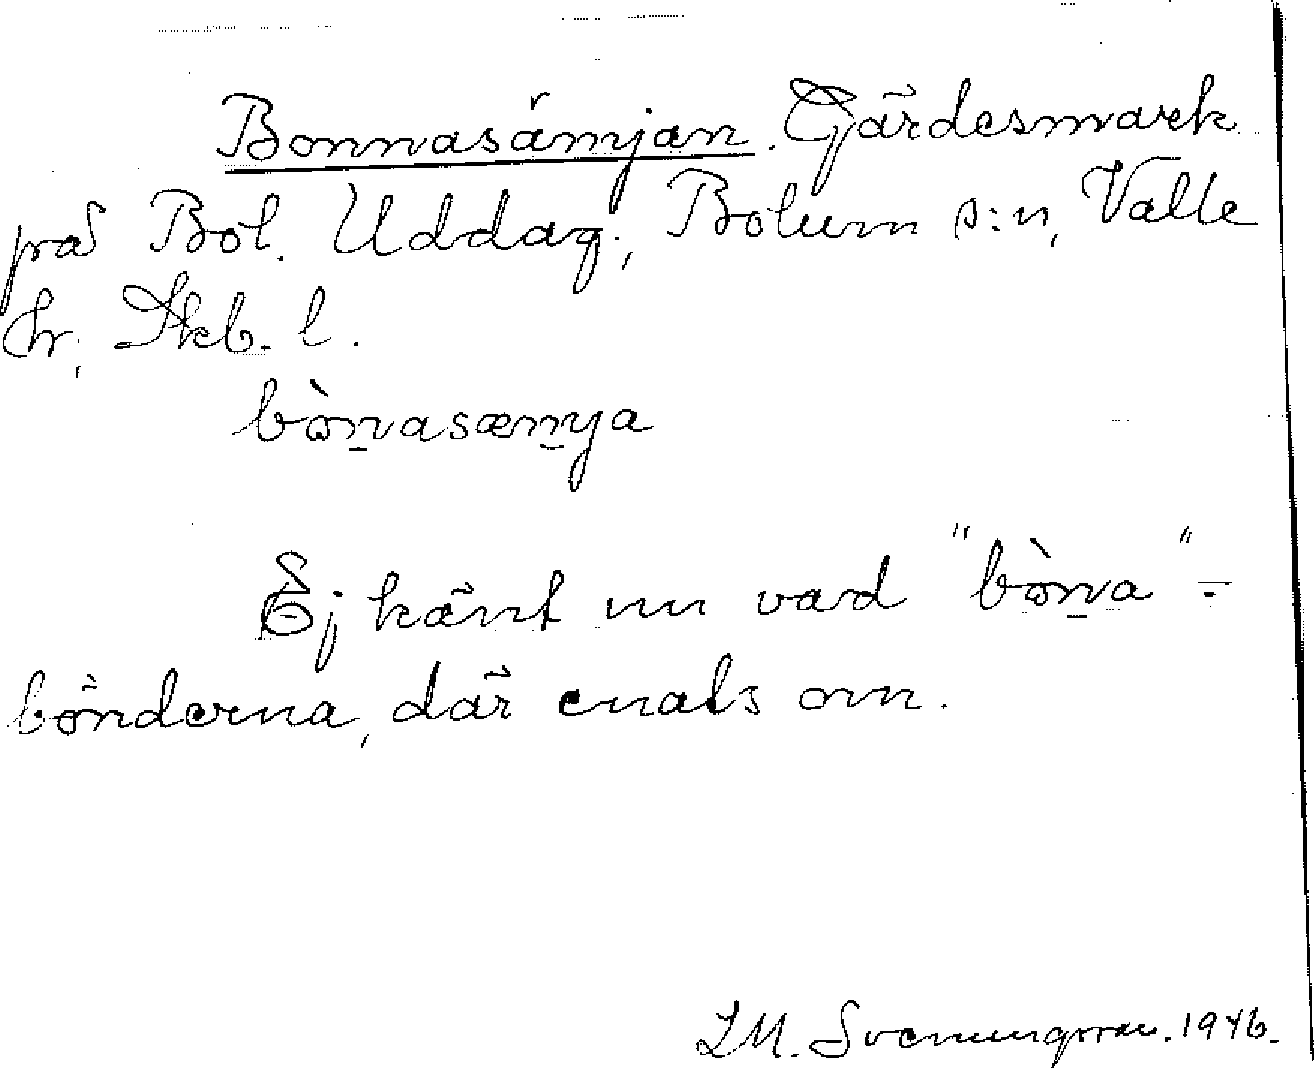 Bonnasämjan. Gärdesmark
på Bol. Uddag., Bolum s:n, Valle
hr, Skb. l.
bònasæmja
Ej känt nu vad "bòna" -
bönderna, där enats om.
LM. Svenungsson. 1946.